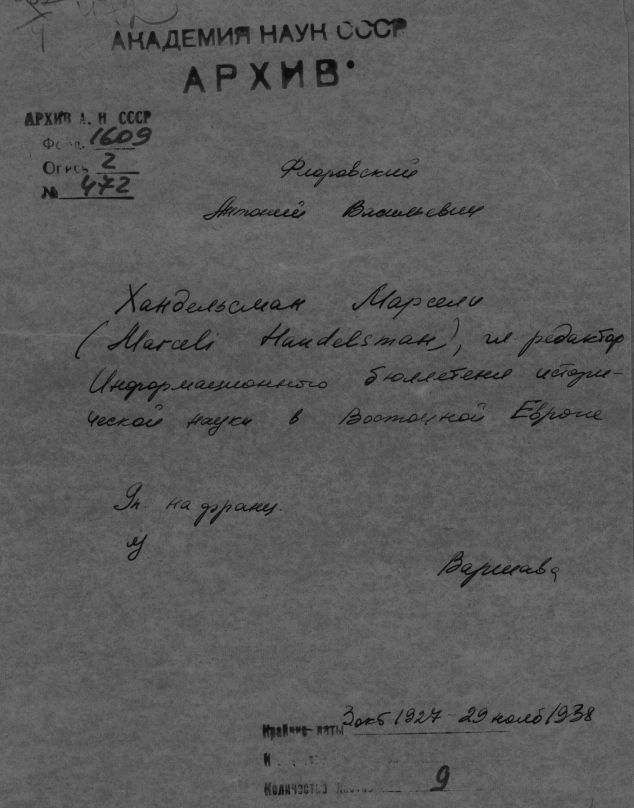 АКАДЕМИЯ НАУК СССР
АРХИВ
АРХИВ А. Н. СССР
Фонд 1609
Опись 2
№ 472
Флоровский
Антоний Васильевич
Хандельсман Марсели
(Marceli Handelsman), гл редактор
Информационного бюллетеня истори-
ческой науки в Восточной Европе
9п. на франц.
яз
Варшава
Крайние даты 3 окт 1927 - 29 нояб 1938
К
Количество листов 9